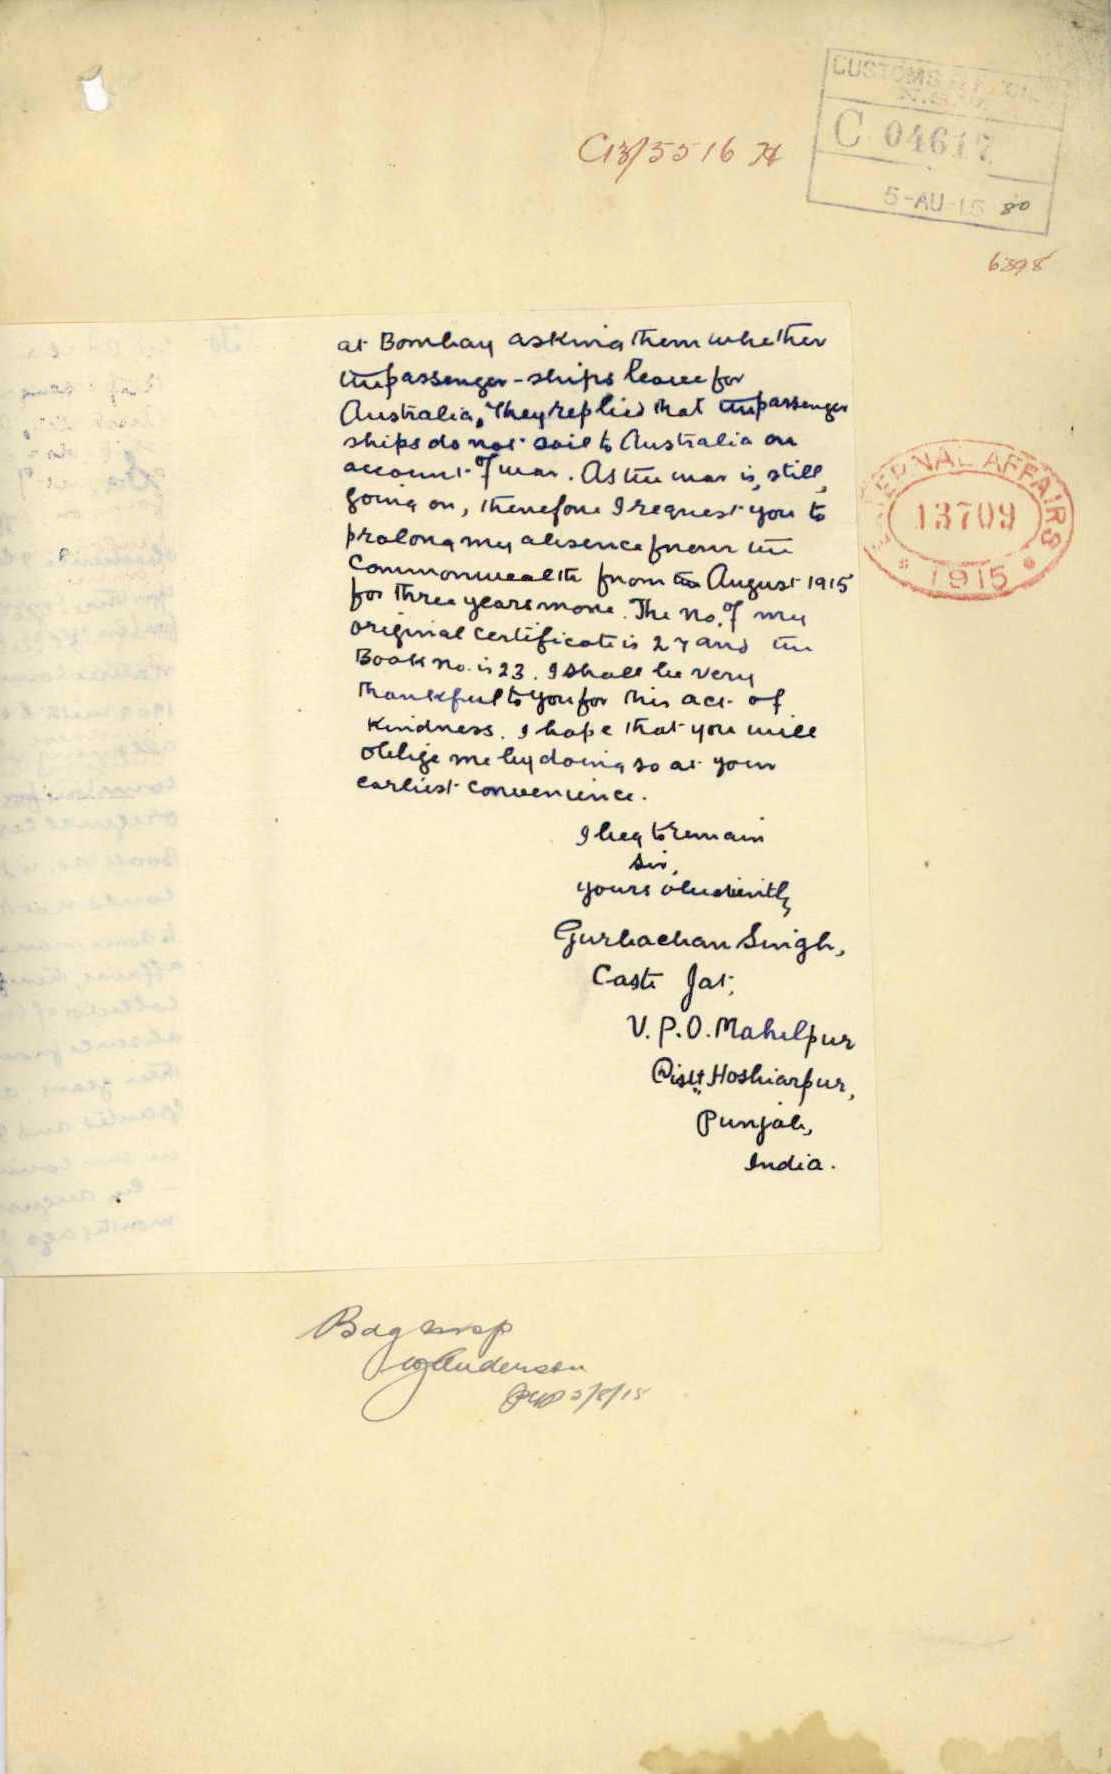 CUSTOMS
N.S.W.
C 04617
5-AU-15 80
C13/5516 H
6398
at Bombay asking them whether
the passenger-ships leave for
Australia, They replied that the passenger
ships do not sail to Australia on
account of war. As the war is still
going on, therefore I request you to
prolong my absence from the
Commonwealth from the August 1915
for three years more. The no. of my
original certificate is 27 and the
Book no. is 23. I shall be very
thankful to you for this act of
kindness. I hope that you will
oblige me by doing so at your
earliest convenience.
I beg to remain
Sir,
yours obediently
Gurbachan Singh,
Caste Jat,
V.P.O. Mahilpur
Distt Hoshiarpur,
Punjab,
India.
EXTERNAL AFFAIRS
13709
* 1915 *
Anderson